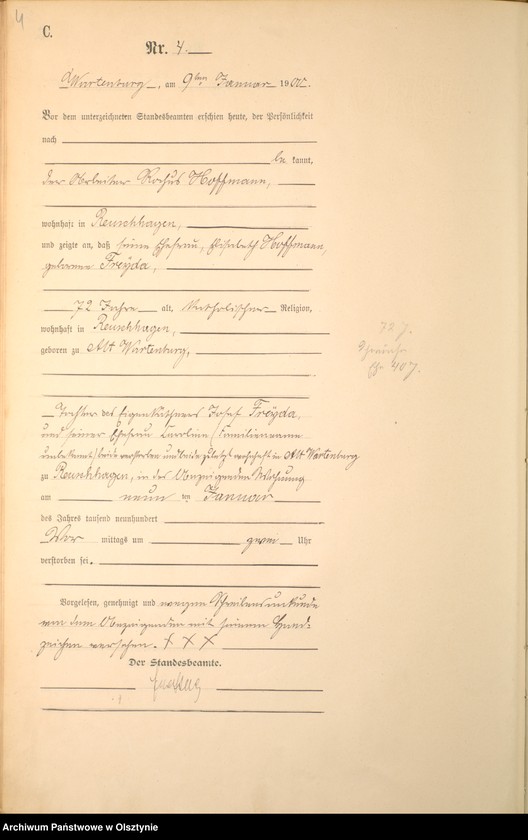 4
C.
Nr. 4.
Wartenburg, am 9ten Januar 1900.
Vor dem unterzeichneten Standesbeamten erschien heute, der Persönlichkeit
nach
be kannt,
der Arbeiter Rochus Hoffmann,
wohnhaft in Reuschhagen,
und zeigte an, daß seine Ehefrau, Elisabeth Hoffmann,
geborene Freyda,
72 Jahre alt, katholischer Religion,
wohnhaft in Reuschhagen,
geboren zu Alt Wartenburg,
Tochter des Eigenkäthners Josef Freyda,
und seiner Ehefrau (Familienname
unbekannt) beide verstorben und beide zuletzt wohnhaft in Alt Wartenburg
zu Reuschhagen, in des Anzeigenden Wohnung
am neun ten Januar
des Jahres tausend neunhundert
Vor mittags um zwei Uhr
verstorben sei.
Vorgelesen, genehmigt und wegen Schreibensunkunde
von dem Anzeigenden mit seinem Hand-
zeichen versehen. + + +
Der Standesbeamte.
72 J.
40 J.
Archiwum Państwowe w Olsztynie